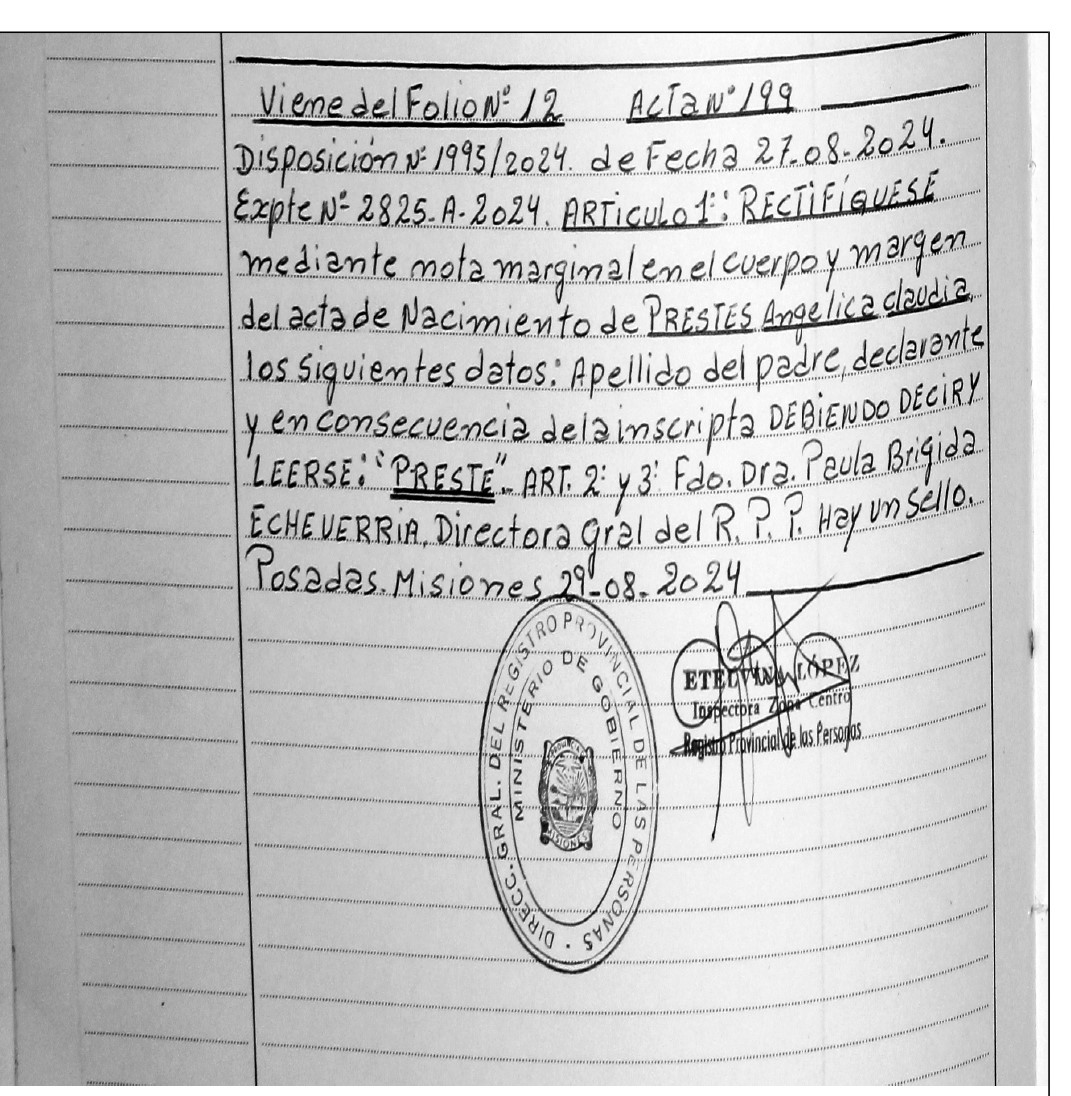 Viene del Folio Nº 12 Acta Nº 199
Disposición Nº 1995/2024. de Fecha 27-08-2024.
Expte Nº 2825-A-2024. ARTiculo 1º: RECTIFÍQUESE
mediante nota marginal en el cuerpo y margen
del acta de Nacimiento de PRESTES Angelica claudia,
los siguientes datos: Apellido del padre, declarante
y en consecuencia de la inscripta DEBIENDO DECIR Y
LEERSE: "PRESTE". ART. 2º y 3º Fdo. Dra. Paula Brigida
ECHEVERRIA, Directora Gral del R. P. P. Hay un sello.
Posadas. Misiones 29-08-2024
DIRECC. GRAL. DEL REGISTRO PROVINCIAL DE LAS PERSONAS
MINISTERIO DE GOBIERNO
PROVINCIA
MISIONES
ETELVINA LÓPEZ
Inspectora Zona Centro
Registro Provincial de las Personas